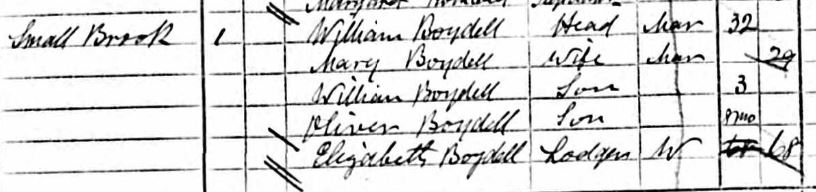 Small Brook 1 William Boydell Head Mar 32
Mary Boydell Wife Mar 29
William Boydell Son 3
Oliver Boydell Son 8 mo
Elizabeth Boydell Lodger W 68 68